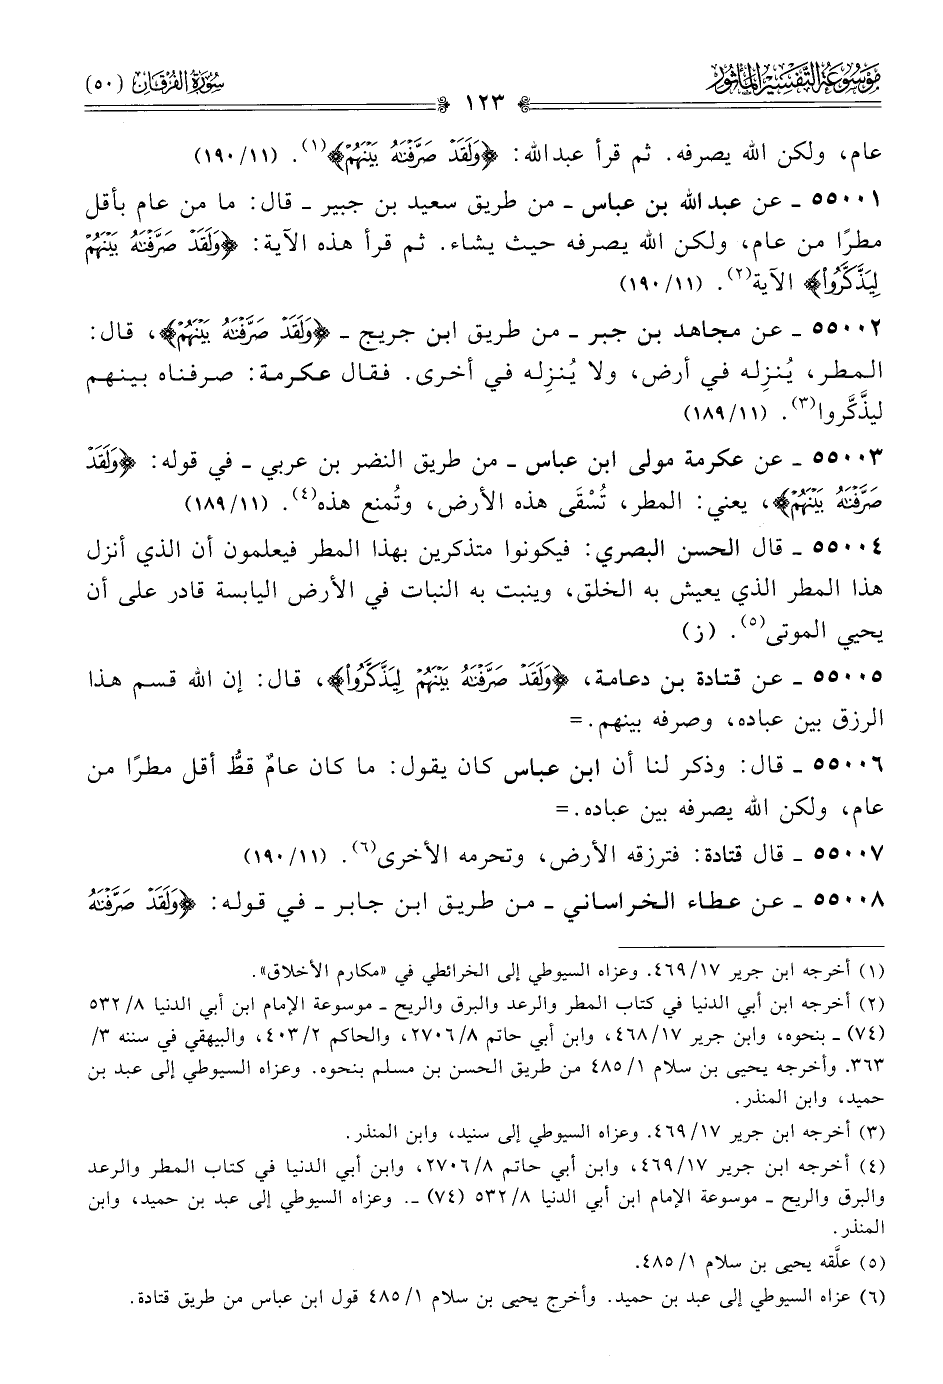 موسوعة التفسير المأثور
سورة الفرقان (٥٠)
١٢٣
عام، ولكن الله يصرفه. ثم قرأ عبدالله: ﴿وَلَقَدْ صَرَّفْنَٰهُ بَيْنَهُمْ﴾(١). (١٩٠/١١)
٥٥٠٠١ ـ عن عبدالله بن عباس ـ من طريق سعيد بن جبير ـ قال: ما من عام بأقل
مطرًا من عام، ولكن الله يصرفه حيث يشاء. ثم قرأ هذه الآية: ﴿وَلَقَدْ صَرَّفْنَٰهُ بَيْنَهُمْ
لِيَذَّكَّرُوا۟﴾ الآية(٢). (١٩٠/١١)
٥٥٠٠٢ ـ عن مجاهد بن جبر ـ من طريق ابن جريج ـ ﴿وَلَقَدْ صَرَّفْنَٰهُ بَيْنَهُمْ﴾، قال:
المطر، يُنزِله في أرض، ولا يُنزِله في أخرى. فقال عكرمة: صرفناه بينهم
ليذَّكَّروا(٣). (١٨٩/١١)
٥٥٠٠٣ ـ عن عكرمة مولى ابن عباس ـ من طريق النضر بن عربي ـ في قوله: ﴿وَلَقَدْ
صَرَّفْنَٰهُ بَيْنَهُمْ﴾، يعني: المطر، تُسْقَى هذه الأرض، وتُمنع هذه(٤). (١٨٩/١١)
٥٥٠٠٤ ـ قال الحسن البصري: فيكونوا متذكرين بهذا المطر فيعلمون أن الذي أنزل
هذا المطر الذي يعيش به الخلق، وينبت به النبات في الأرض اليابسة قادر على أن
يحيي الموتى(٥). (ز)
٥٥٠٠٥ ـ عن قتادة بن دعامة، ﴿وَلَقَدْ صَرَّفْنَٰهُ بَيْنَهُمْ لِيَذَّكَّرُوا۟﴾، قال: إن الله قسم هذا
الرزق بين عباده، وصرفه بينهم.=
٥٥٠٠٦ ـ قال: وذكر لنا أن ابن عباس كان يقول: ما كان عامٌ قطُّ أقل مطرًا من
عام، ولكن الله يصرفه بين عباده.=
٥٥٠٠٧ ـ قال قتادة: فترزقه الأرض، وتحرمه الأخرى(٦). (١٩٠/١١)
٥٥٠٠٨ ـ عن عطاء الخراساني ـ من طريق ابن جابر ـ في قوله: ﴿وَلَقَدْ صَرَّفْنَٰهُ
(١) أخرجه ابن جرير ٤٦٩/١٧. وعزاه السيوطي إلى الخرائطي في «مكارم الأخلاق».
(٢) أخرجه ابن أبي الدنيا في كتاب المطر والرعد والبرق والريح ـ موسوعة الإمام ابن أبي الدنيا ٥٣٢/٨
(٧٤) ـ بنحوه، وابن جرير ٤٦٨/١٧، وابن أبي حاتم ٢٧٠٦/٨، والحاكم ٤٠٣/٢، والبيهقي في سننه ٣/
٣٦٣. وأخرجه يحيى بن سلام ٤٨٥/١ من طريق الحسن بن مسلم بنحوه. وعزاه السيوطي إلى عبد بن
حميد، وابن المنذر.
(٣) أخرجه ابن جرير ٤٦٩/١٧. وعزاه السيوطي إلى سنيد، وابن المنذر.
(٤) أخرجه ابن جرير ٤٦٩/١٧، وابن أبي حاتم ٢٧٠٦/٨، وابن أبي الدنيا في كتاب المطر والرعد
والبرق والريح ـ موسوعة الإمام ابن أبي الدنيا ٥٣٢/٨ (٧٤) ـ. وعزاه السيوطي إلى عبد بن حميد، وابن
المنذر.
(٥) علَّقه يحيى بن سلام ٤٨٥/١.
(٦) عزاه السيوطي إلى عبد بن حميد. وأخرج يحيى بن سلام ٤٨٥/١ قول ابن عباس من طريق قتادة.